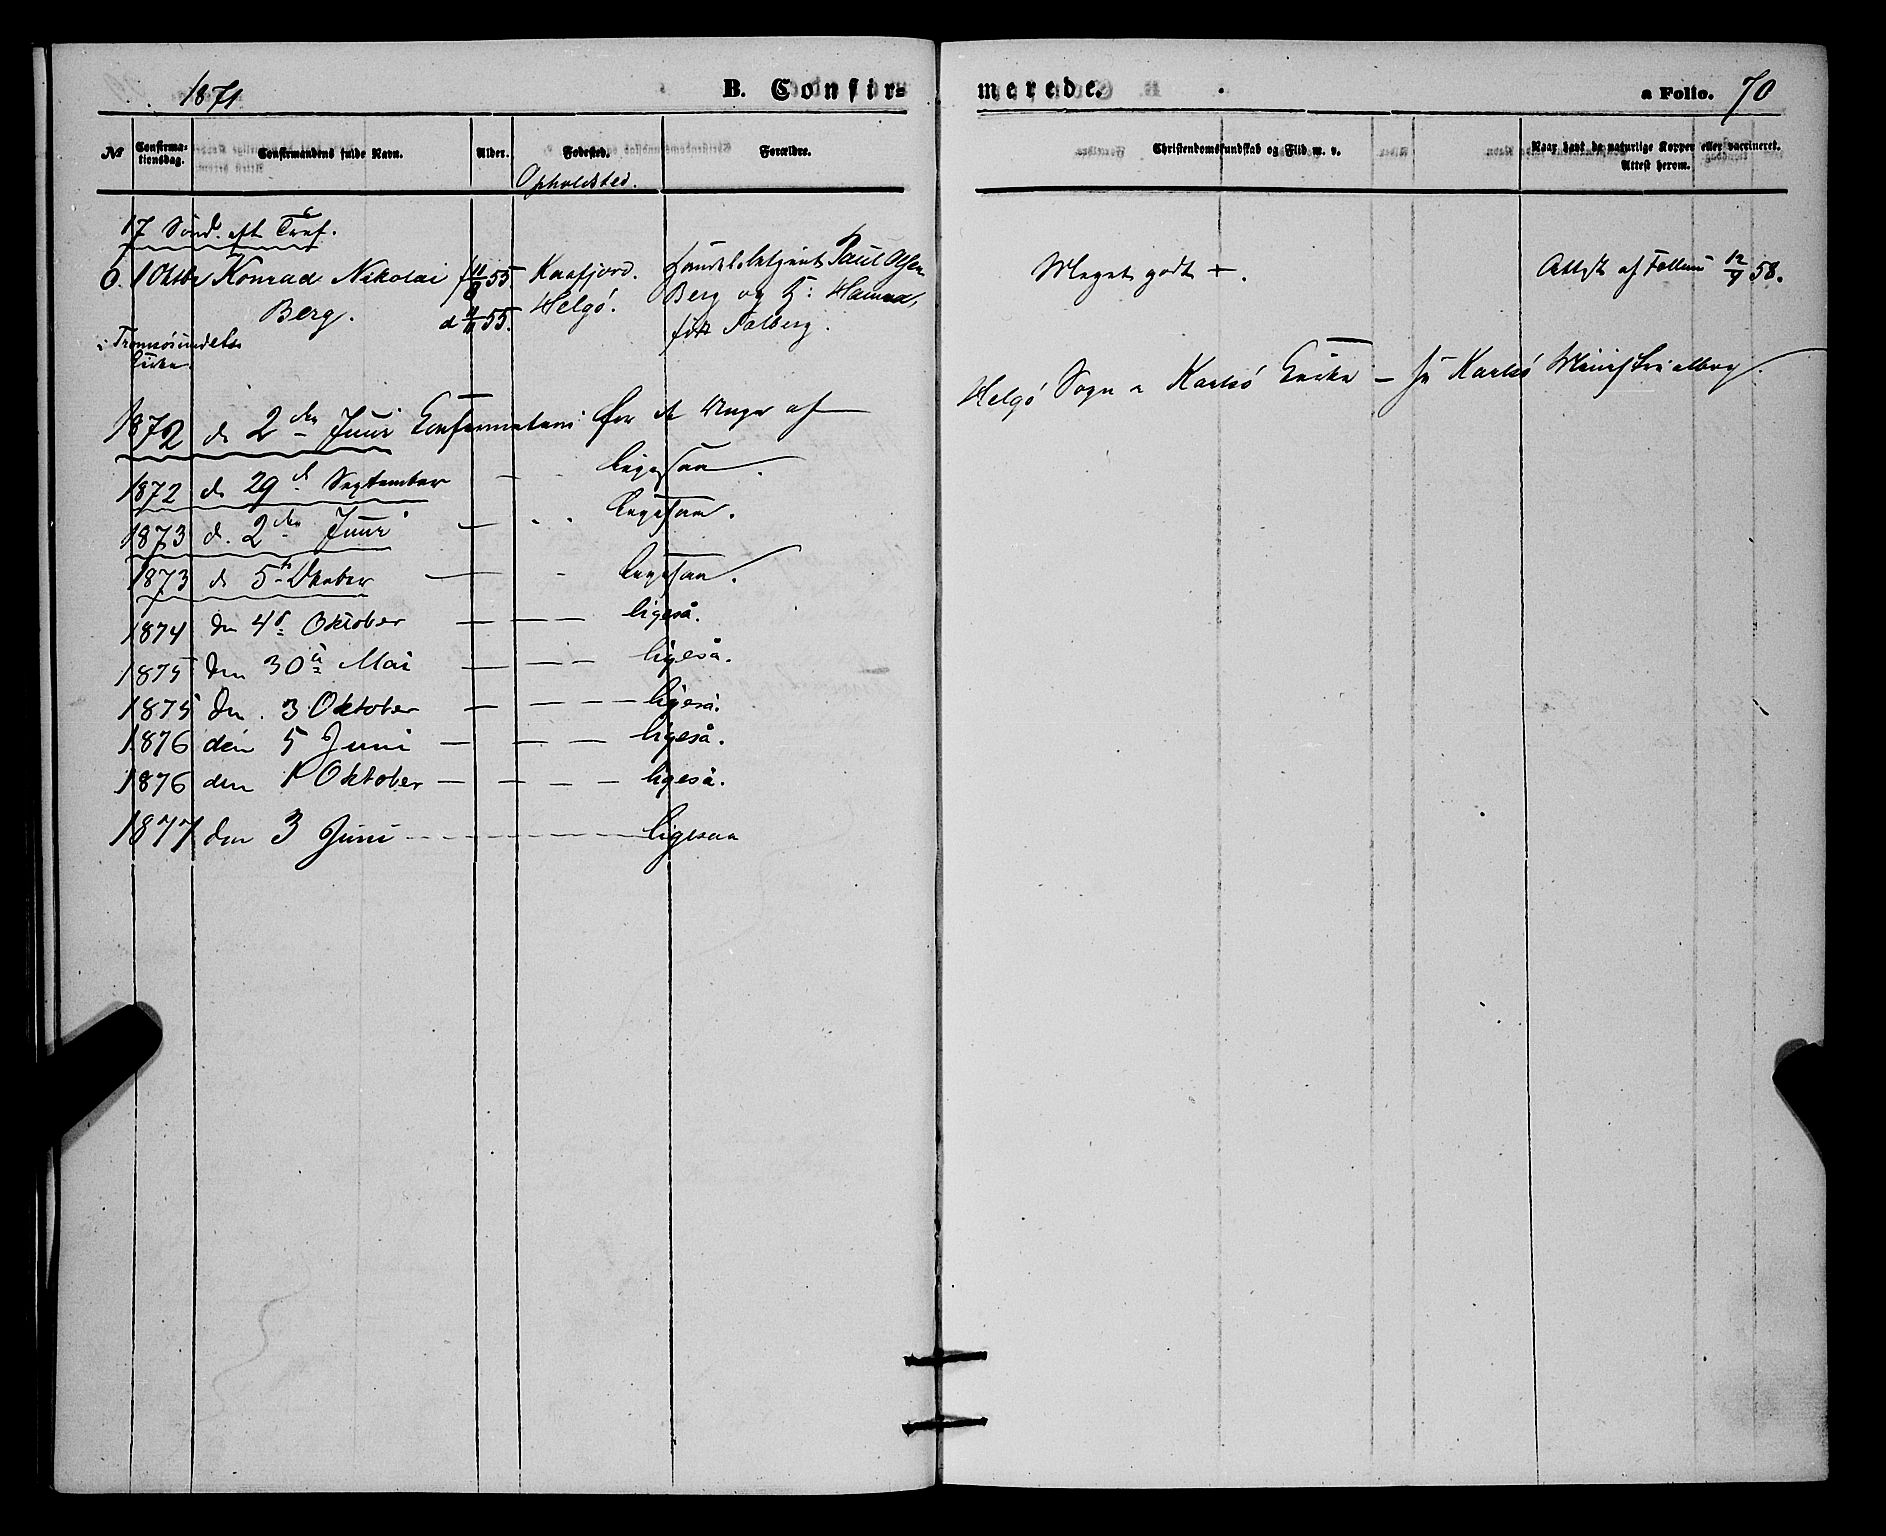 1871
B. Confir=
merede.
a Folio. 70
No
Confirma-
tionsdag.
Confirmandens fulde Navn.
Alder.
Fødested.
Opholdsted.
Forældre.
Christendomskundskab og Flid m. v.
Naar havt de naturlige Kopper eller vaccineret.
Attest herom.
17 Sønd. eft Tref.
6. 1 Oktbr Konrad Nikolai f 11/8 55 Kaafjord. Paul Olsen Meget godt +. Attest af 12/9 58.
Berg. d 55. Helgø. Berg og H: Hanna,
født Falberg.
i Tromsøsundets
Kirke.
1872 d. 2den Juni Confirmation for de Unge af Helgø Sogn a Karlsø Kirke – Se Karlsø Ministerialbog.
1872 d. 29d September — - - ligesaa.
1873 d. 2den Juni — - - ligesaa.
1873 d. 5t Oktober — - ligesaa.
1874 den 4d Oktober — — — ligeså.
1875 den 30te Mai — — — ligeså.
1875 den 3 Oktober — — — — ligeså.
1876 den 5 Juni — — — — ligeså.
1876 den 1 Oktober — — — — ligeså.
1877 den 3 Juni - - - - - - - ligesaa